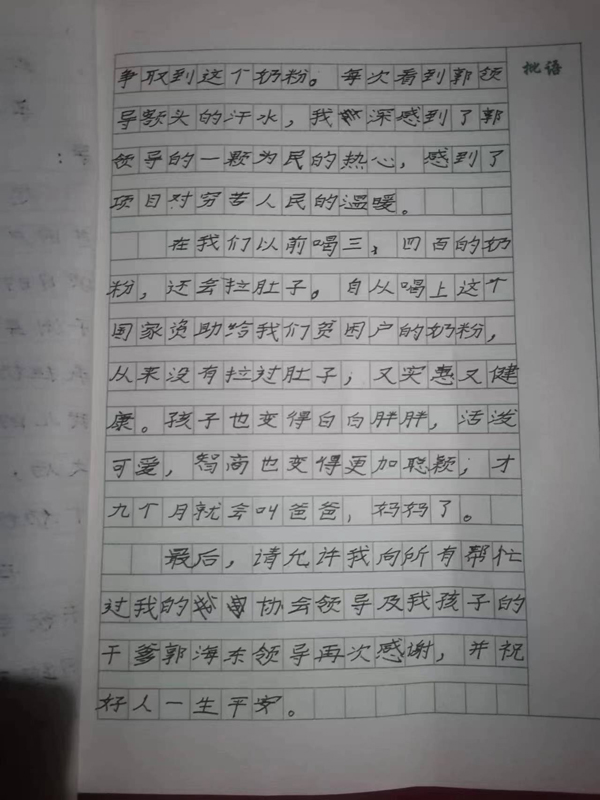 批语
争取到这个奶粉。每次看到郭领
导额头的汗水，我深感到了郭
领导的一颗为民的热心，感到了
项目对穷苦人民的温暖。
在我们以前喝三、四百的奶
粉，还会拉肚子。自从喝上这个
国家资助给我们贫困户的奶粉，
从来没有拉过肚子；又实惠又健
康。孩子也变得白白胖胖，活泼
可爱，智商也变得更加聪颖；才
九个月就会叫爸爸、妈妈了。
最后，请允许我向所有帮忙
过我的协会领导及我孩子的
干爹郭海东领导再次感谢，并祝
好人一生平安。